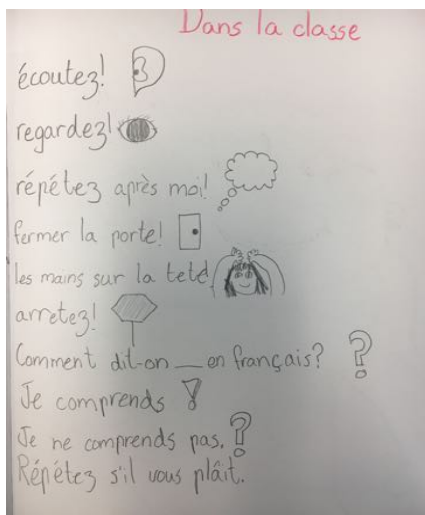 Dans la classe
écoutez!
regardez!
répétez après moi!
fermer la porte!
les mains sur la teté
arretez!
Comment dit-on __ en français? ?
Je comprends !
Je ne comprends pas. ?
Répétez s'il vous plâit.